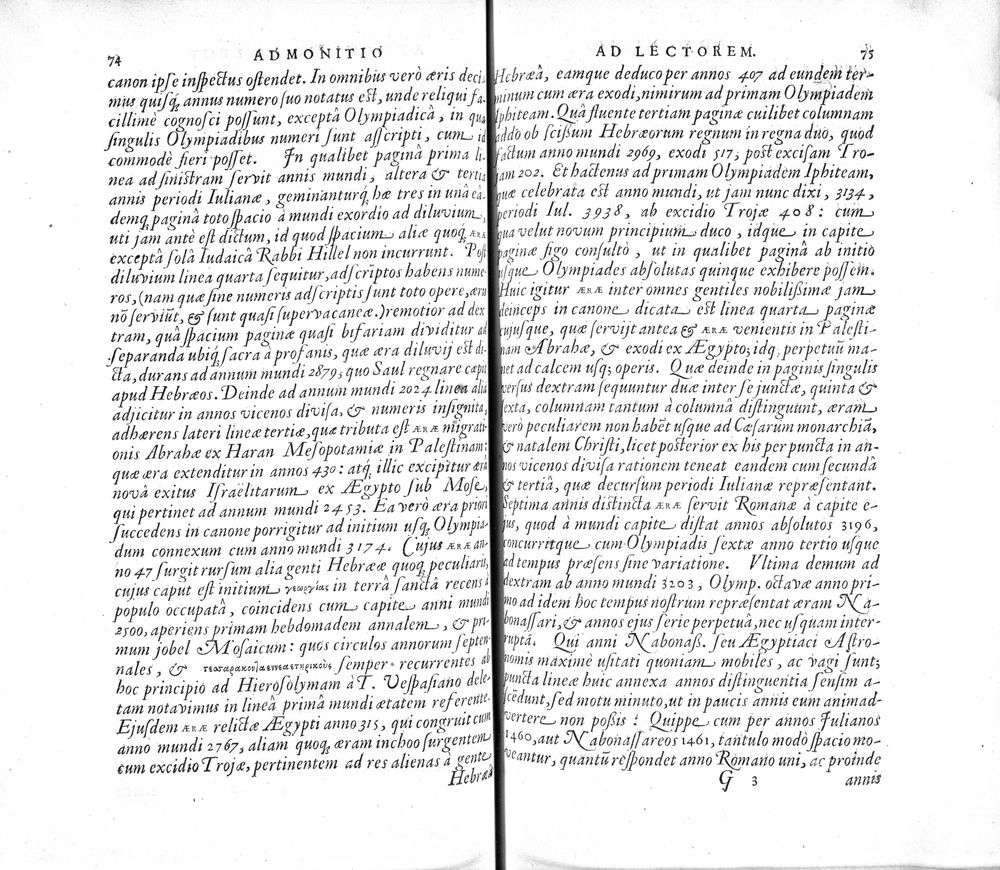 74 ADMONITIO
canon ipse inspectus ostendet. In omnibus verò æris deci-
mus quisq́ annus numero suo notatus est, unde reliqui fa-
cillimè cognosci possunt, exceptâ Olympiadicâ, in qua
singulis Olympiadibus numeri sunt asscripti, cum id
commodè fieri posset. In qualibet paginâ prima li-
nea ad sinistram servit annis mundi, altera & tertia
annis periodi Iulianæ, geminanturq́ hæ tres in unâ ea-
demq́ paginâ toto spacio à mundi exordio ad diluvium,
uti jam antè est dictum, id quod spacium aliæ quoq́ ÆRÆ
exceptâ solâ Iudaicâ Rabbi Hillel non incurrunt. Post
diluvium linea quarta sequitur, adscriptos habens nume-
ros, (nam quæ sine numeris adscriptis sunt toto opere, æru
nõ serviũt, & sunt quasi supervacaneæ.) remotior ad dex
tram, quâ spacium paginæ quasi bifariam dividitur ad
separanda ubiq́ sacra à profanis, quæ æra diluvij est di-
cta, durans ad annum mundi 2879, quo Saul regnare capit
apud Hebræos. Deinde ad annum mundi 2024 linea alia
adjicitur in annos vicenos divisa, & numeris insignita,
adhærens lateri lineæ tertiæ, quæ tributa est ÆRÆ migrati-
onis Abrahæ ex Haran Mesopotamiæ in Palestinam:
quæ æra extenditur in annos 430: atq́ illic excipitur æra
novâ exitus Israëlitarum ex Ægypto sub Mose,
qui pertinet ad annum mundi 2453. Ea verò æra priori
succedens in canone porrigitur ad initium usq́ Olympia-
dum connexum cum anno mundi 3174. Cujus ÆRÆ an-
no 47 surgit rursum alia genti Hebrææ quoq́ peculiaris,
cujus caput est initium γεωργίας in terrâ sanctâ recens à
populo occupatâ, coincidens cum capite anni mundi
2500, aperiens primam hebdomadem annalem, & pri-
mum jobel Mosaicum: quos circulos annorum septen-
nales, & semper recurrentes ab
hoc principio ad Hierosolymam à T. Vespasiano dele-
tam notavimus in lineâ prima mundi ætatem referente.
Ejusdem ÆRÆ relictæ Ægypti anno 315, qui congruit cum
anno mundi 2767, aliam quoq́ æram inchoo surgentem
cum excidio Trojæ, pertinentem ad res alienas à gente
Hebræâ
AD LECTOREM. 75
Hebræâ, eamque deduco per annos 407 ad eundem ter-
minum cum æra exodi, nimirum ad primam Olympiadem
Iphiteam. Quâ fluente tertiam paginæ cuilibet columnam
addo ob scissum Hebræorum regnum in regna duo, quod
factum anno mundi 2969, exodi 517; post excisam Tro-
jam 202. Et hactenus ad primam Olympiadem Iphiteam,
quæ celebrata est anno mundi, ut jam nunc dixi, 3134,
periodi Iul. 3938, ab excidio Trojæ 408: cum
qua velut novum principium duco, idque in capite
paginæ figo consultò, ut in qualibet paginâ ab initio
usque Olympiades absolutas quinque exhibere possem.
Huic igitur ÆRÆ inter omnes gentiles nobilissimæ jam
deinceps in canone dicata est linea quarta paginæ
cujusque, quæ servijt antea & ÆRÆ venientis in Palesti-
nam Abrahæ, & exodi ex Ægypto; idq́; perpetuũ ma-
net ad calcem usq́; operis. Quæ deinde in paginis singulis
versus dextram sequuntur duæ inter se junctæ, quinta &
sexta, columnam tantum à columnâ distinguunt, æram
verò peculiarem non habẽt usque ad Cæsarum monarchiã,
& natalem Christi, licet posterior ex his per puncta in an-
nos vicenos divisa rationem teneat eandem cum secundâ
& tertiâ, quæ decursum periodi Iulianæ repræsentant.
Septima annis distincta ÆRÆ servit Romanæ à capite e-
jus, quod à mundi capite distat annos absolutos 3196,
concurritque cum Olympiadis sextæ anno tertio usque
ad tempus præsens sine variatione. Vltima demum ad
dextram ab anno mundi 3203, Olymp. octavæ anno pri-
mo ad idem hoc tempus nostrum repræsentat æram Na-
bonassari, & annos ejus serie perpetuâ, nec usquam inter-
ruptâ. Qui anni Nabonass. seu Ægyptiaci Astro-
nomis maximè usitati quoniam mobiles, ac vagi sunt;
puncta lineæ huic annexa annos distinguentia sensim a-
scẽdunt, sed motu minuto, ut in paucis annis eum animad-
vertere non possis: Quippe cum per annos Iulianos
1460, aut Nabonassareos 1461, tantulo modò spacio mo-
veantur, quantũ respondet anno Romano uni, ac proinde
G 3 annis